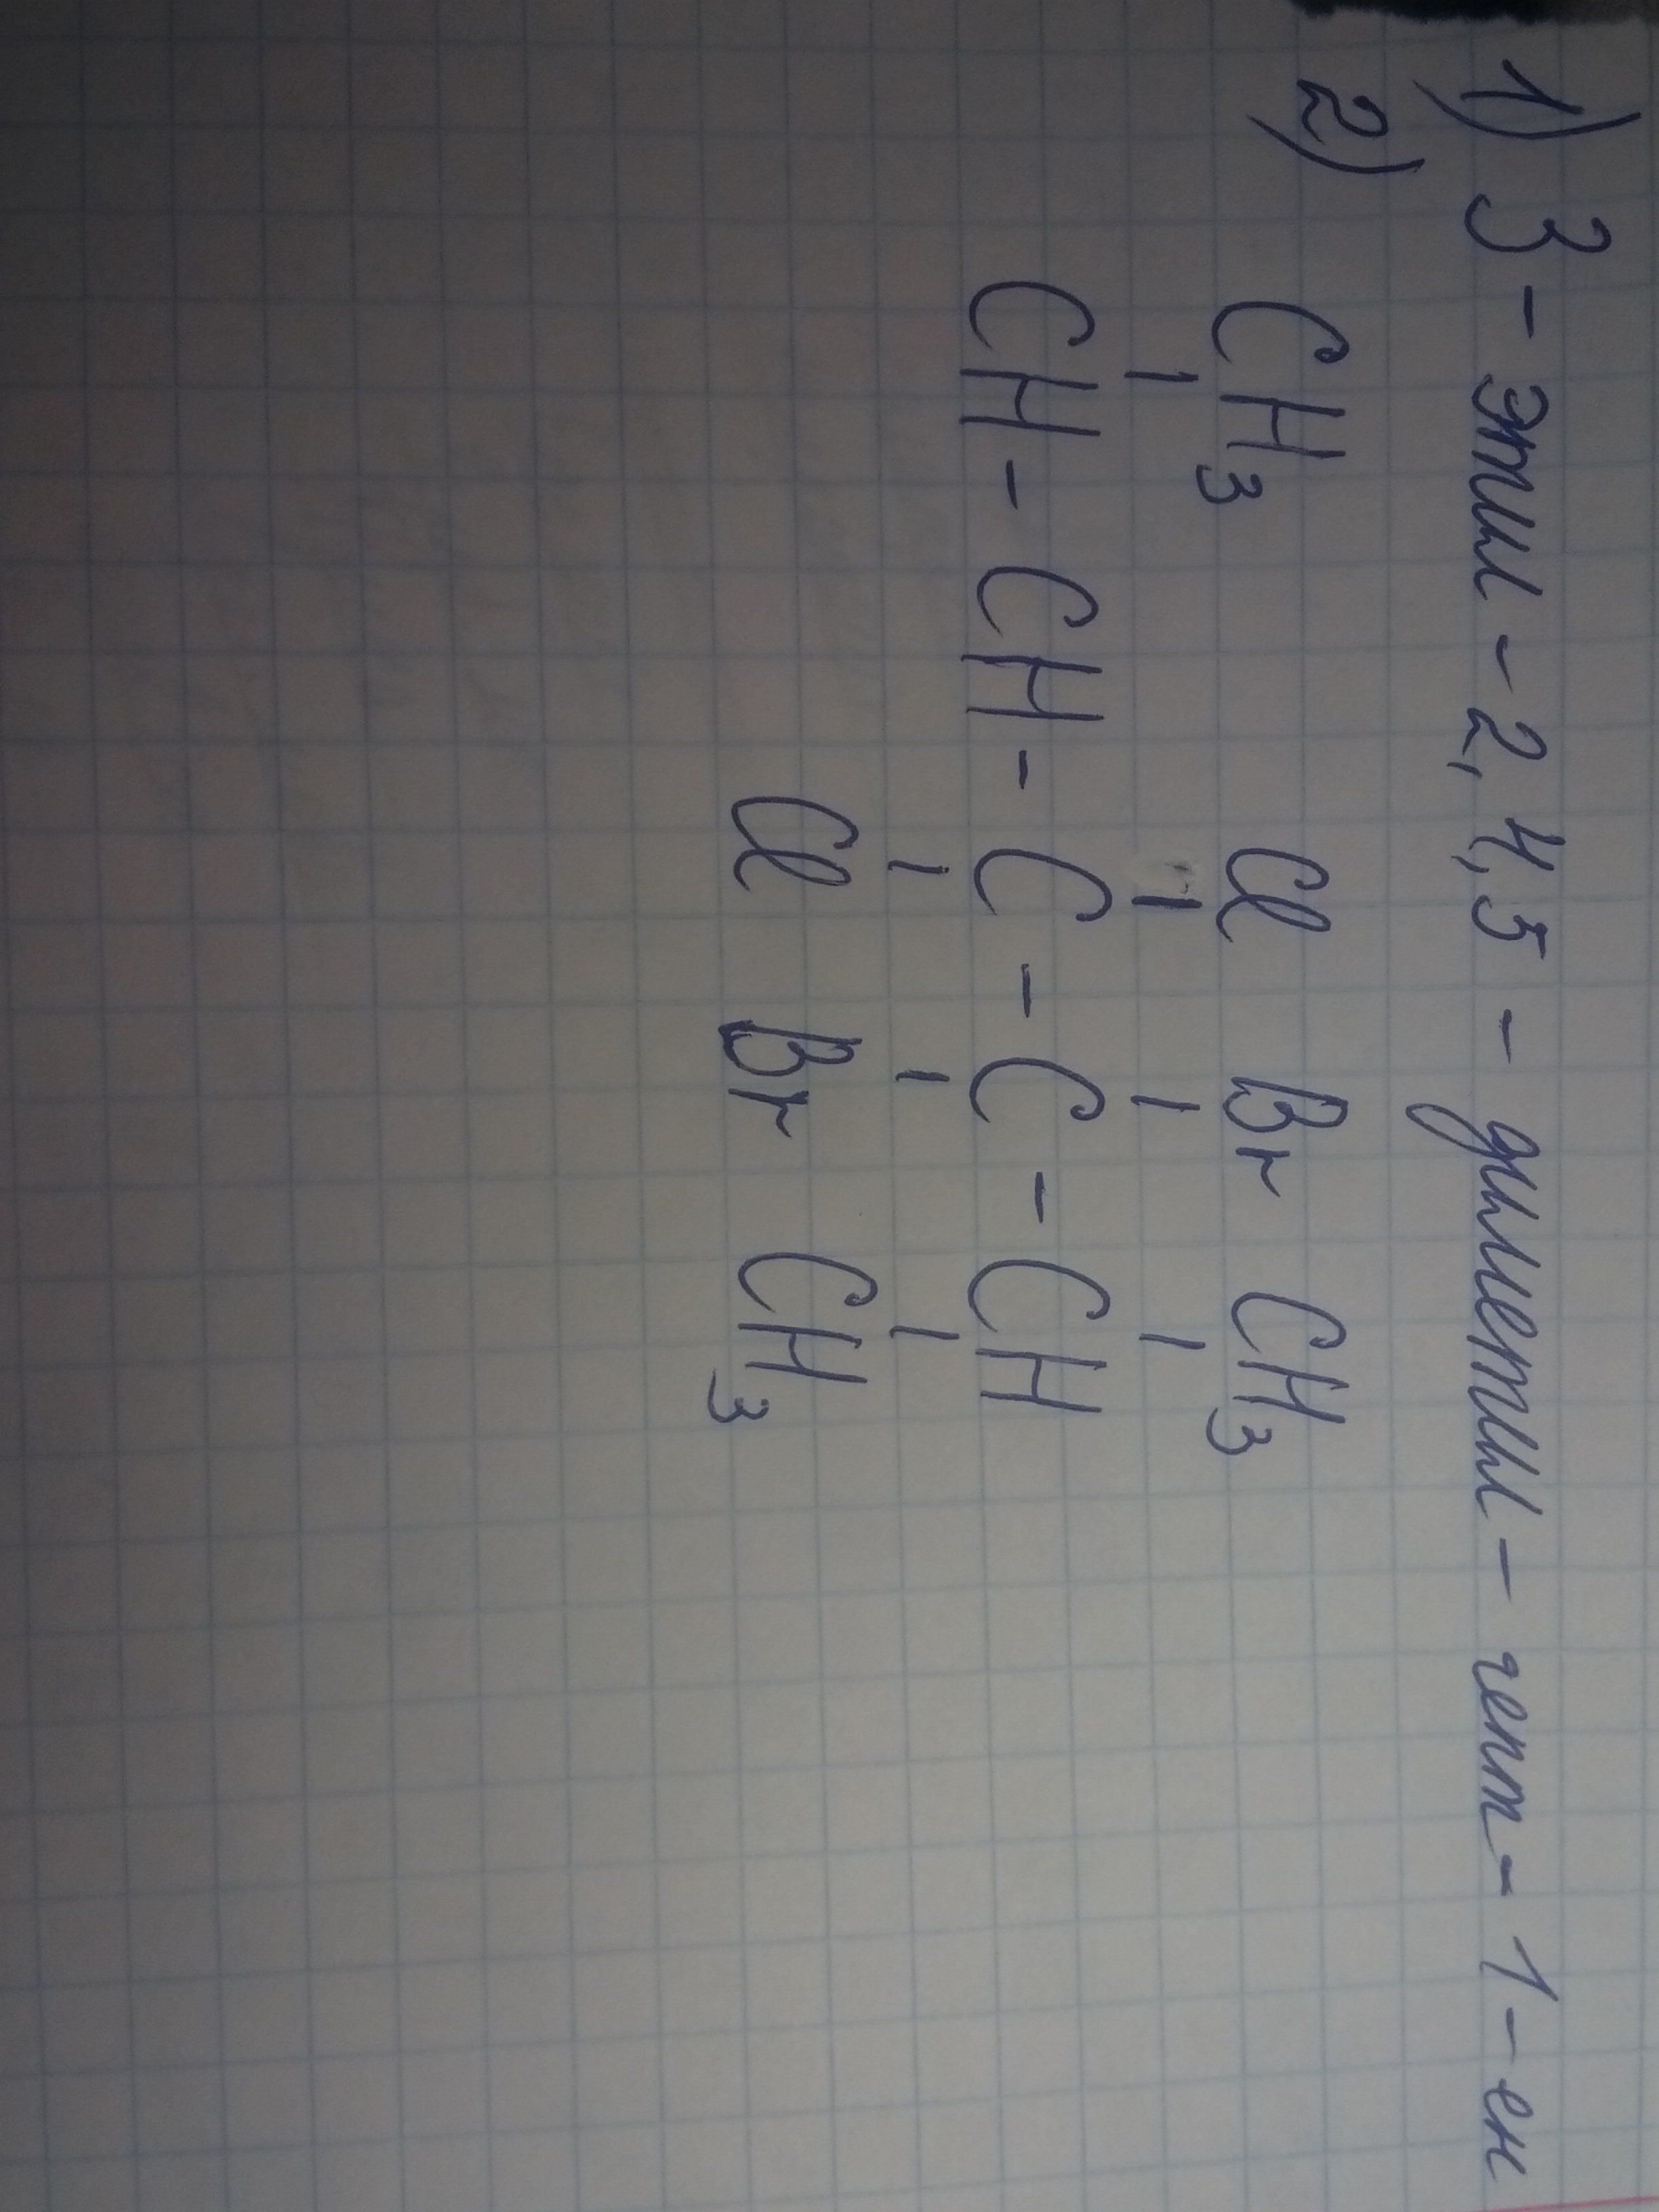 1) 3-этил-2,4,5-диметил-гепт-1-ен
2) CH3 Cl Br CH3
CH-CH-C-C-CH
Cl Br CH3